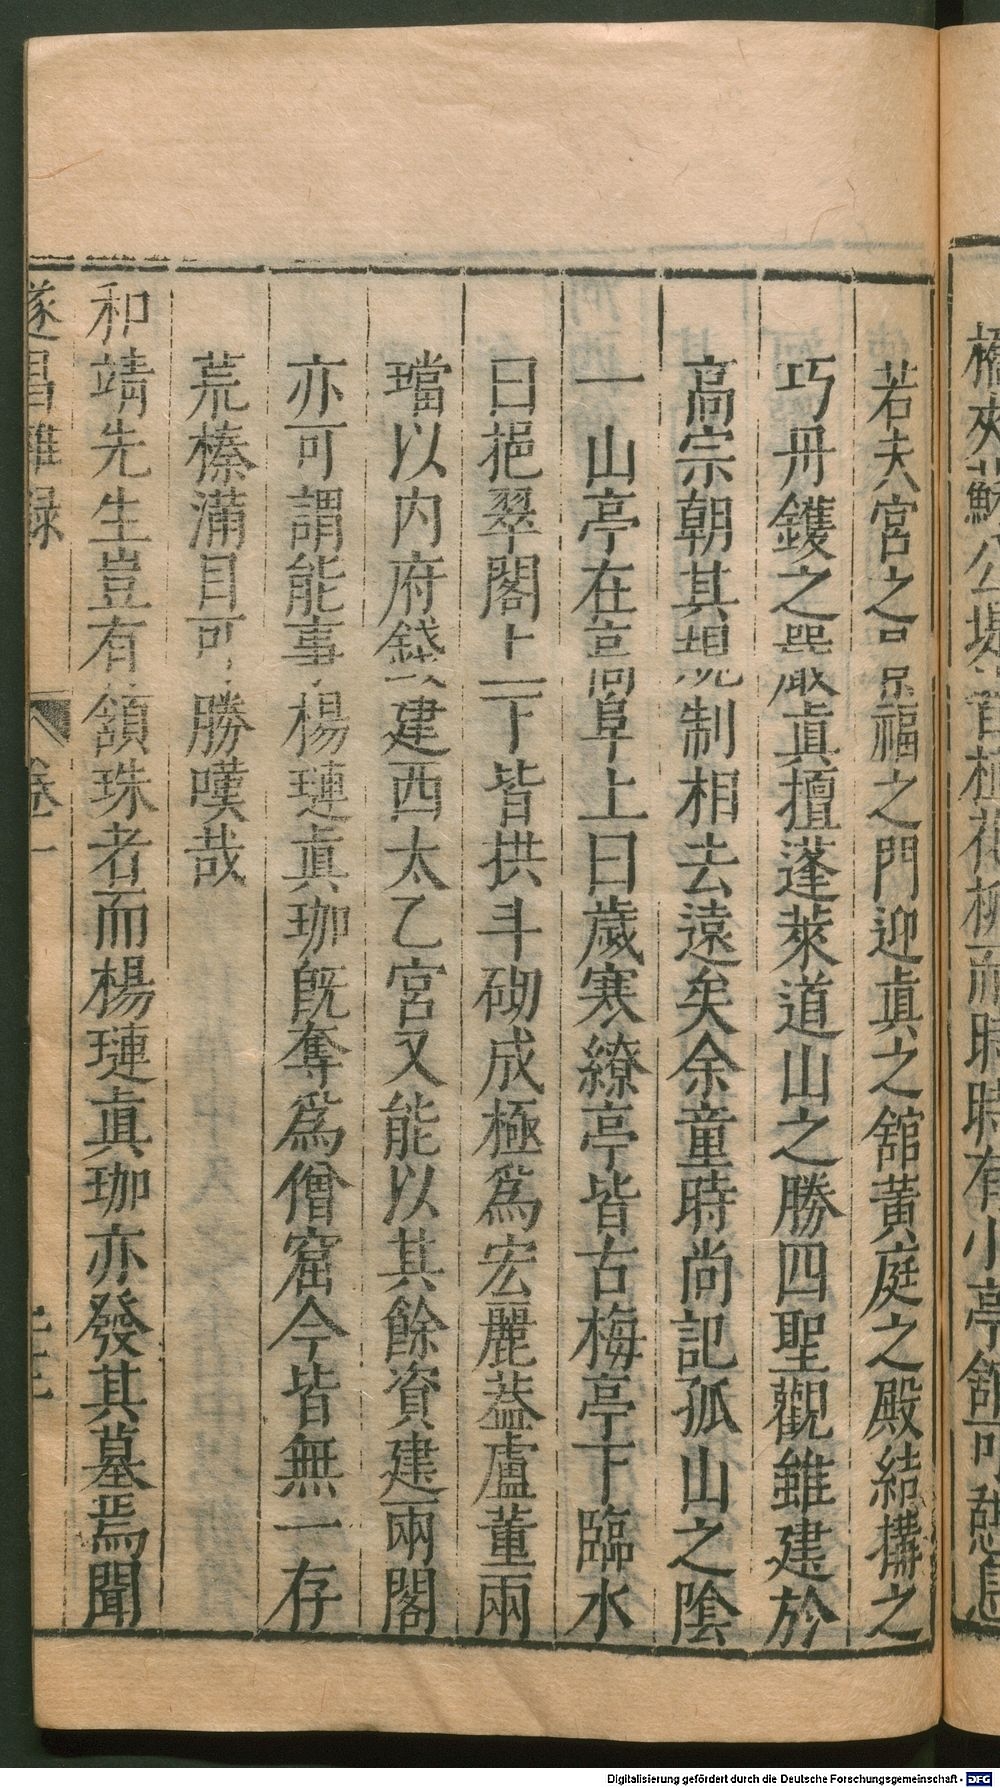 橋夾蘇公堤皆植花柳而時時有小亭舘可憩息
若夫宮之景福之門迎眞之舘黃庭之殿結搆之
巧丹鑊之嚴眞擅蓬萊道山之勝四聖觀雖建於
高宗朝其規制相去遠矣余童時尚記孤山之陰
一山亭在高阜上曰歲寒繚亭皆古梅亭下臨水
曰挹翠閣上二下皆拱斗砌成極爲宏麗葢盧董兩
璫以內府錢建西太乙宮又能以其餘資建兩閣
亦可謂能事楊璉眞珈旣奪爲僧窟今皆無一存
荒榛滿目可勝嘆哉
和靖先生豈有頷珠者而楊璉眞珈亦發其墓焉聞
遂昌雜錄
卷一
Digitalisierung gefördert durch die Deutsche Forschungsgemeinschaft - DFG